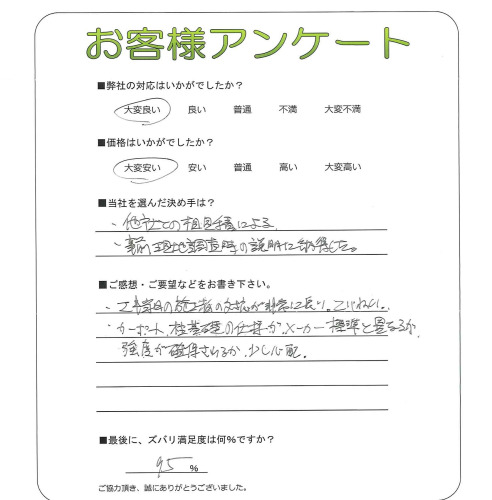 お客様アンケート
■弊社の対応はいかがでしたか?
大変良い 良い 普通 不満 大変不満
■価格はいかがでしたか?
大変安い 安い 普通 高い 大変高い
■当社を選んだ決め手は?
・他社との相見積による
・事前現地調査時の説明に納得した。
■ご感想・ご要望などをお書き下さい。
・工事当日の施工者の対応が非常に良い。ていねい。
・カーポート、柱基礎の仕様が、メーカー標準と異なるが、
強度が確保されるか、少し心配。
■最後に、ズバリ満足度は何%ですか?
95 %
ご協力頂き、誠にありがとうございました。